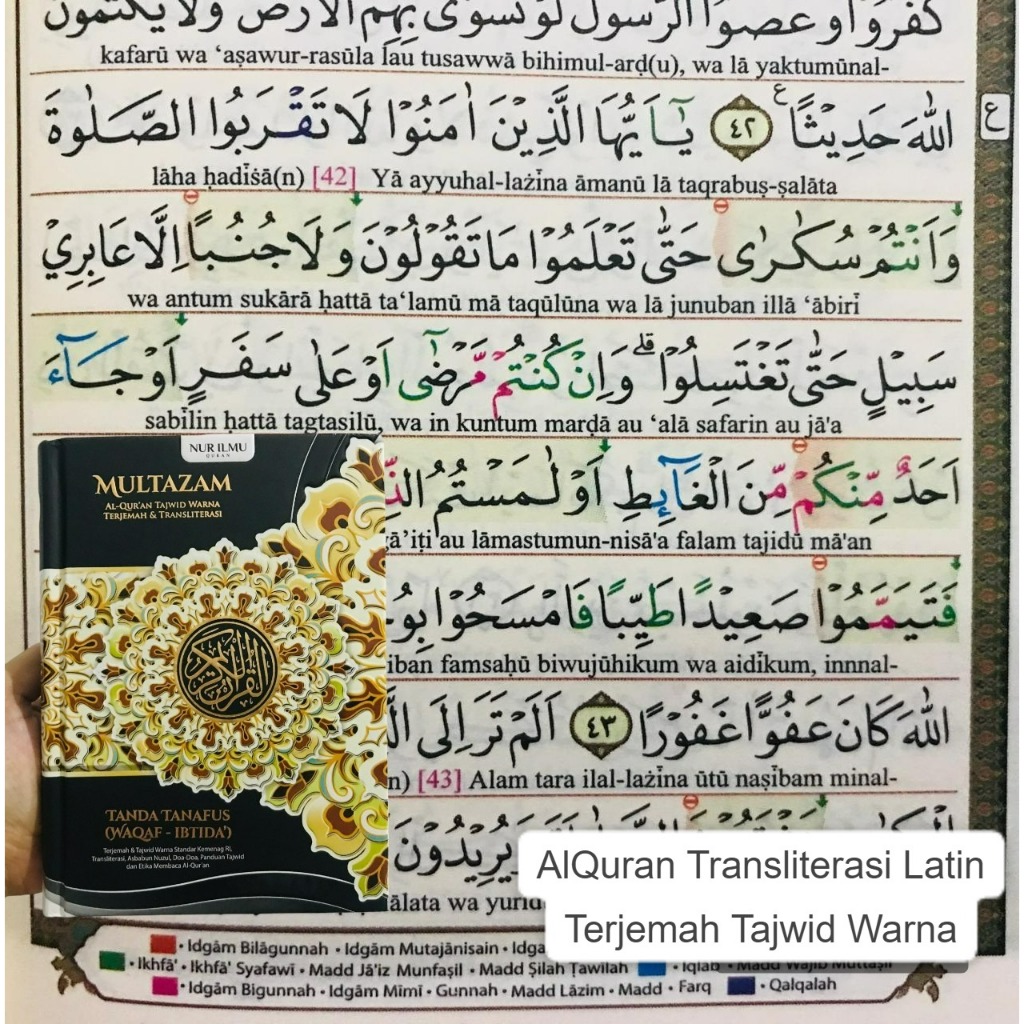 كَفَرُوْا وَعَصَوُا الرَّسُوْلَ لَوْ تُسَوّٰى بِهِمُ الْاَرْضُ وَلَا يَكْتُمُوْنَ
kafarū wa ‘aṣawur-rasūla lau tusawwā bihimul-arḍ(u), wa lā yaktumūnal-
اللّٰهَ حَدِيْثًا ࣖ ٤٢ يٰٓاَيُّهَا الَّذِيْنَ اٰمَنُوْا لَا تَقْرَبُوا الصَّلٰوةَ
ع
lāha ḥadīṡā(n) [42] Yā ayyuhal-lażīna āmanū lā taqrabuṣ-ṣalāta
وَاَنْتُمْ سُكَارٰى حَتّٰى تَعْلَمُوْا مَا تَقُوْلُوْنَ وَلَا جُنُبًا اِلَّا عَابِرِيْ
wa antum sukārā ḥattā ta‘lamū mā taqūlūna wa lā junuban illā ‘ābirī
سَبِيْلٍ حَتّٰى تَغْتَسِلُوْاۗ وَاِنْ كُنْتُمْ مَّرْضٰٓى اَوْ عَلٰى سَفَرٍ اَوْ جَاۤءَ
sabīlin ḥattā tagtasilū, wa in kuntum marḍā au ‘alā safarin au jā'a
اَحَدٌ مِّنْكُمْ مِّنَ الْغَاۤىِٕطِ اَوْ لٰمَسْتُمُ
’iṭi au lāmastumun-nisā'a falam tajidū mā'an
فَتَيَمَّمُوْا صَعِيْدًا طَيِّبًا فَامْسَحُوْا
iban famsaḥū biwujūhikum wa aidīkum, innnal-
اللّٰهَ كَانَ عَفُوًّا غَفُوْرًا ٤٣ اَلَمْ تَرَ اِلَى
n) [43] Alam tara ilal-lażīna ūtū naṣībam minal-
يُرِيْدُوْنَ
ālata wa yurīd
NUR ILMU
QURAN
MULTAZAM
AL-QUR'AN TAJWID WARNA
TERJEMAH & TRANSLITERASI
القرآن الكريم
TANDA TANAFUS
(WAQAF - IBTIDA')
Terjemah & Tajwid Warna Standar Kemenag RI,
Transliterasi, Asbabun Nuzul, Doa-Doa, Panduan Tajwid
dan Etika Membaca Al-Qur'an
AlQuran Transliterasi Latin
Terjemah Tajwid Warna
• Idgām Bilāgunnah • Idgām Mutajānisain • Idga
• Ikhfā' • Ikhfā' Syafawī • Madd Jā'iz Munfaṣil • Madd Ṣilah Ṭawīlah • Iqlāb • Madd Wājib Muttaṣil
• Idgām Bigunnah • Idgām Mīmī • Gunnah • Madd Lāzim • Madd • Farq • Qalqalah